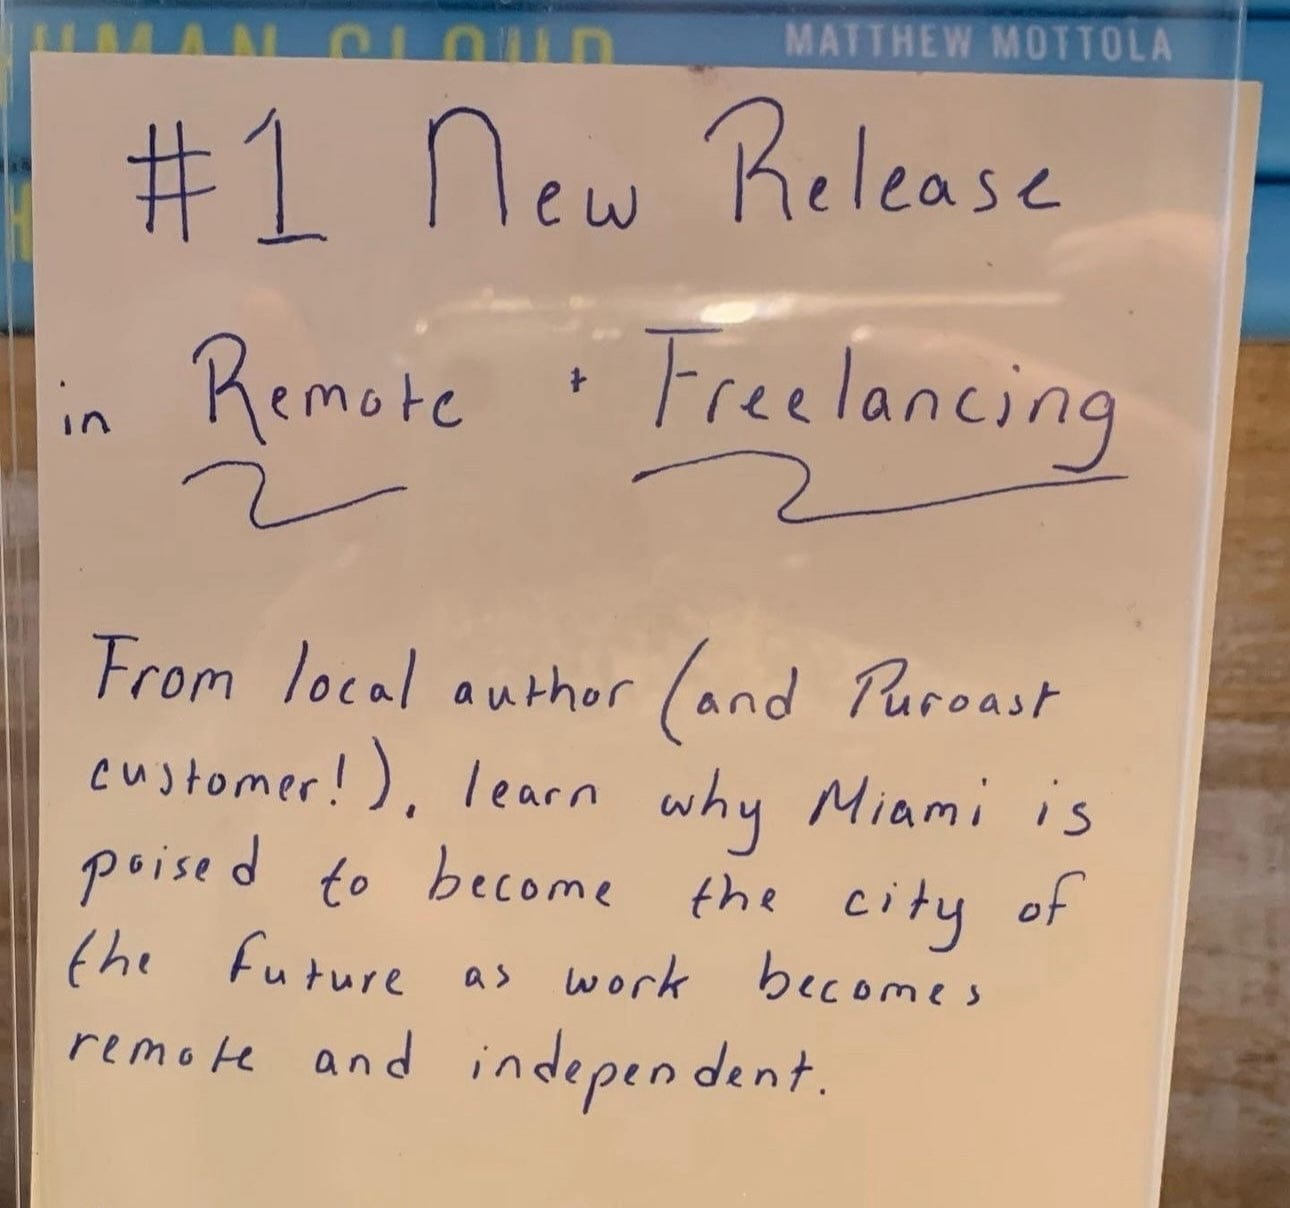 HUMAN CLOUD MATTHEW MOTTOLA
#1 New Release
in Remote + Freelancing
From local author (and Puroast
customer!), learn why Miami is
poised to become the city of
the future as work becomes
remote and independent.